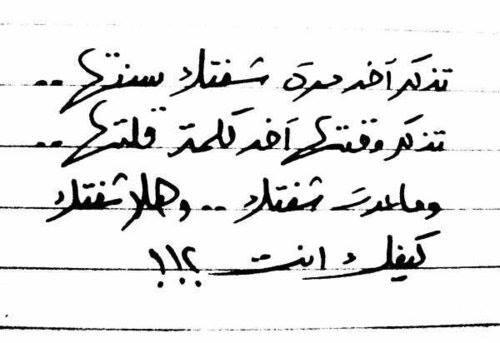 تذكر آخر مرة شفتك سنتها ..
تذكر وقتها آخر كلمة قلتها ..
وما عدت شفتك .. وهلا شفتك
كيفك انت ؟!؟!